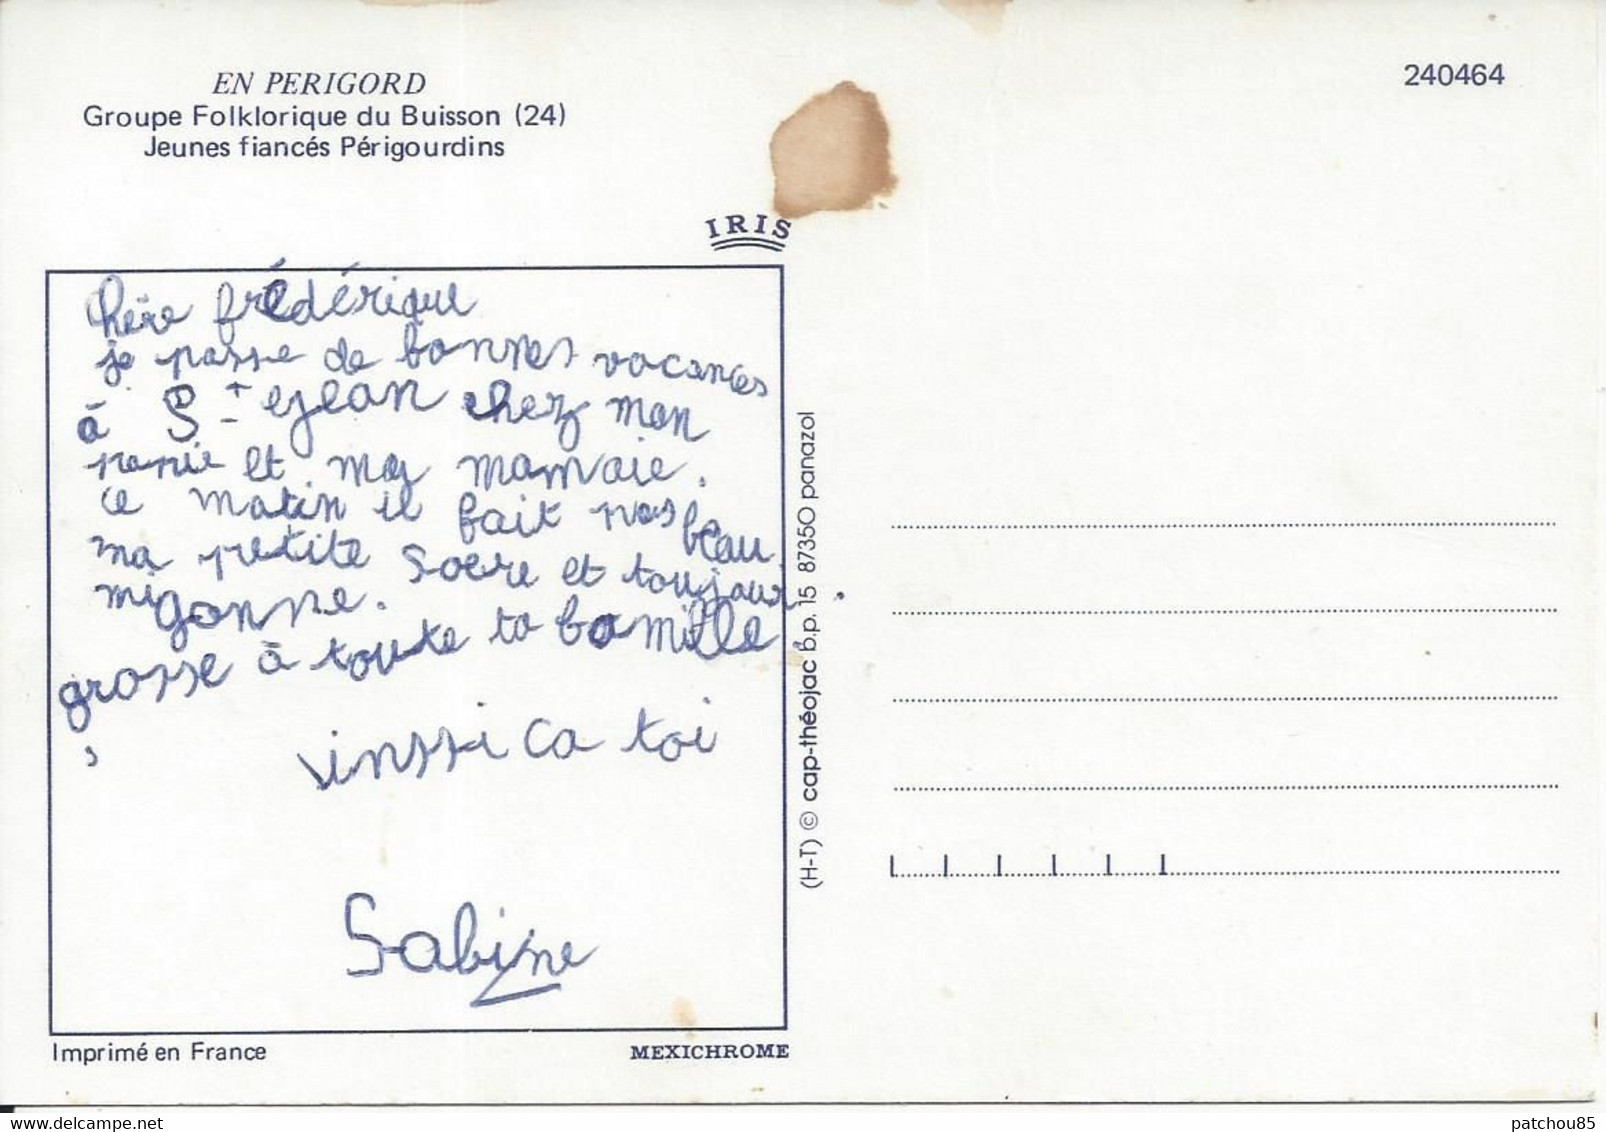 EN PERIGORD
Groupe Folklorique du Buisson (24)
Jeunes fiancés Périgourdins
240464
IRIS
hère frédérique
je passe de bonnes vacances
à St ejean chez mon
papie et ma mamaie.
ce matin il fait pas beau
ma petite soere et toujour
migonne.
grosse à toute ta famille
inssi ca toi
Sabine
(H-T) © cap-théojac b.p. 15 87350 panazol
Imprimé en France
MEXICHROME
patchou85